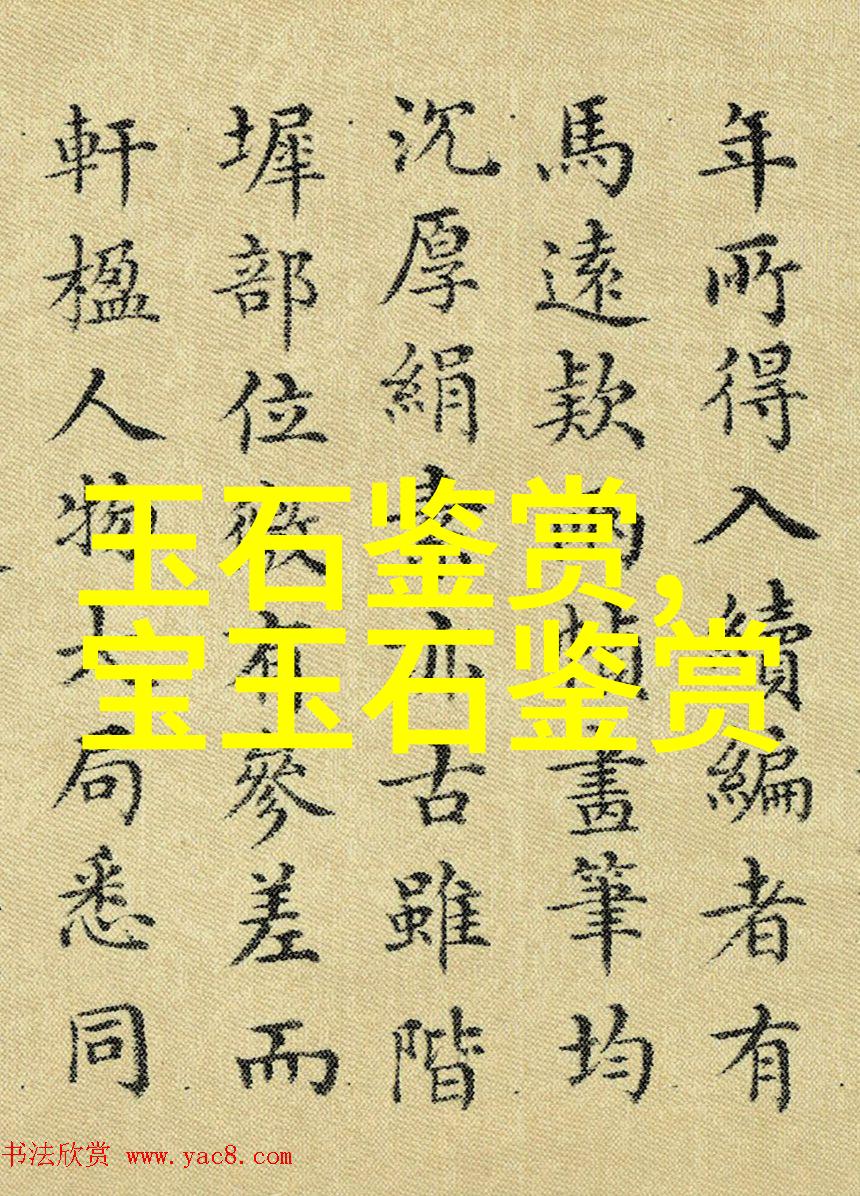 年所得入續編者有
馬遠欵兩幀畫筆均
沉厚絹素亦古雖階
墀部位微有參差而
軒楹人物大局悉同
玉石鉴赏,
宝玉石鉴赏
书法欣赏 www.yac8.com